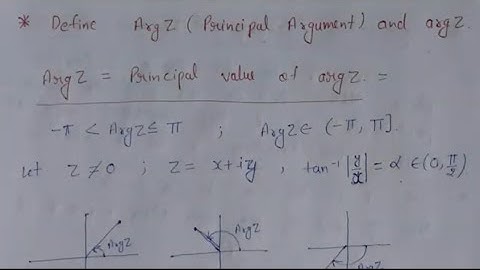 * Define Arg Z (Principal Argument) and arg Z.
Arg Z = Principal value of arg Z =
-π < Arg Z ≤ π ; Arg Z ∈ (-π, π].
let Z ≠ 0 ; Z = x+iy , tan⁻¹ |y/x| = α ∈ (0, π/2)
Arg Z Arg Z Arg Z